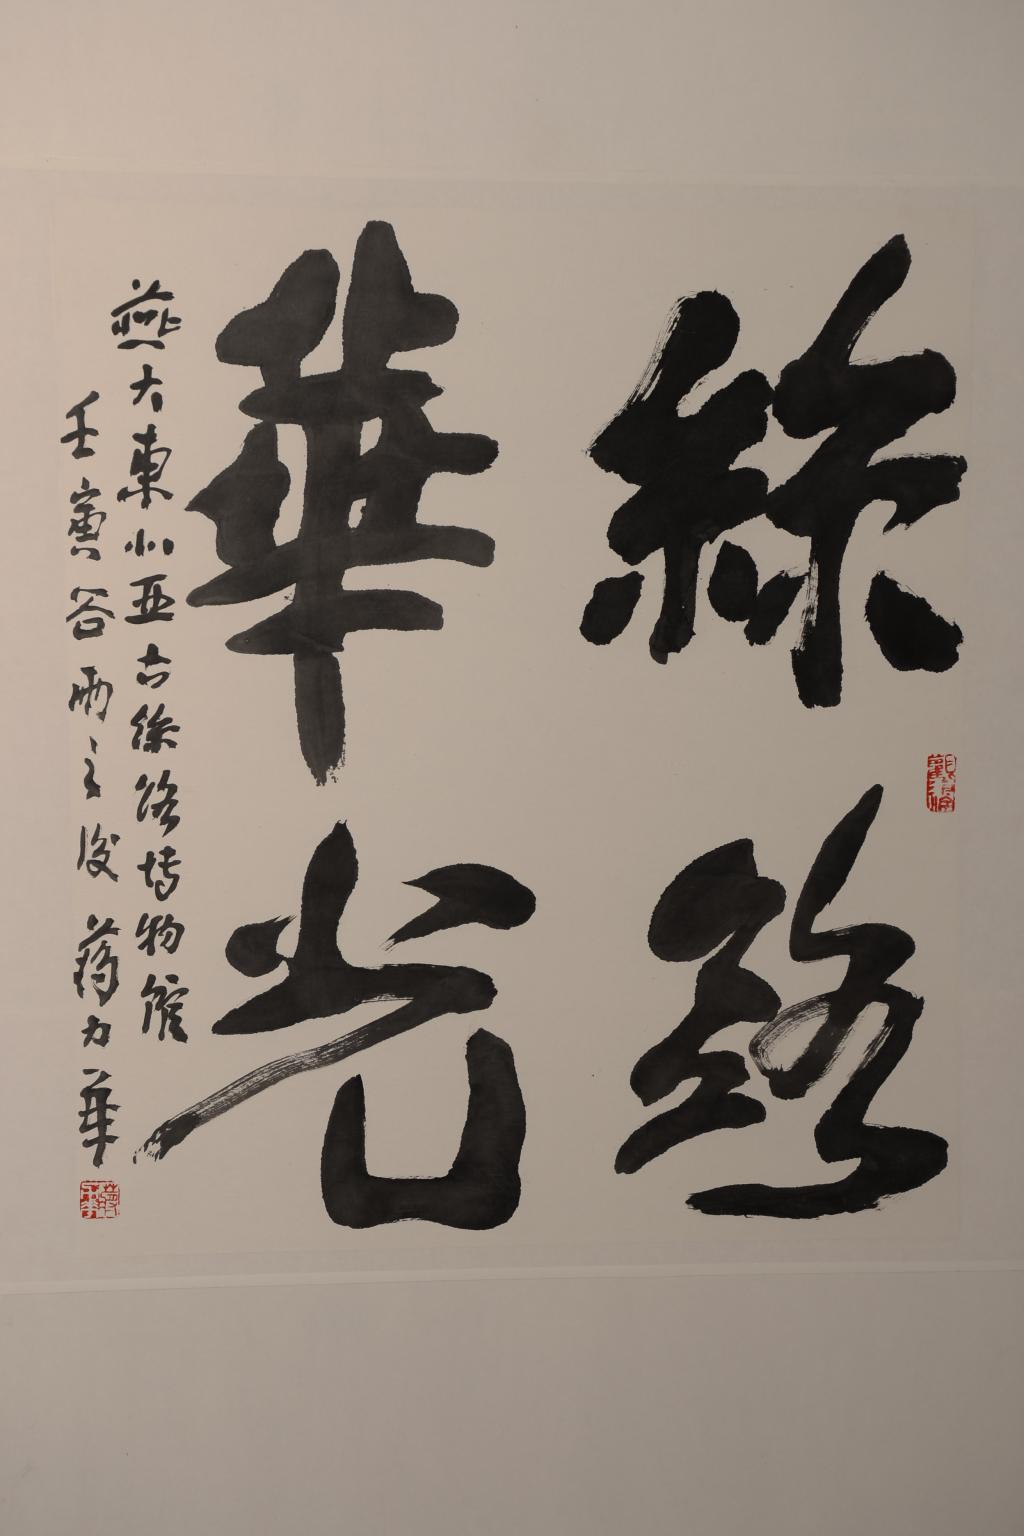 絲路
華光
燕大東北亞古絲路博物館
壬寅谷雨之後蔣力華